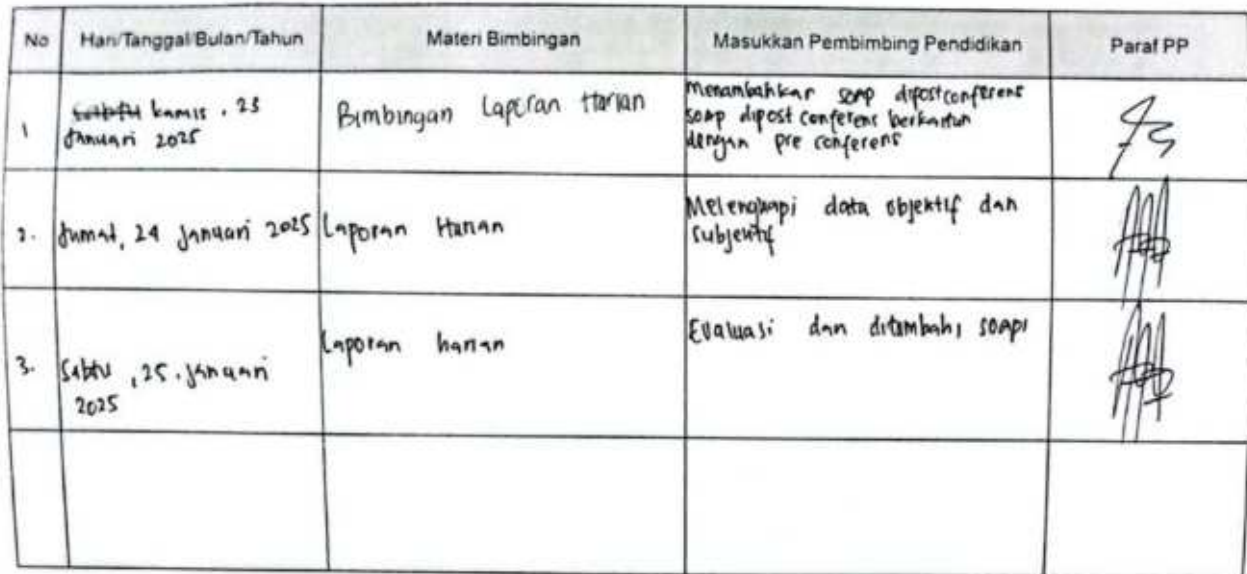 No Hari/Tanggal/Bulan/Tahun Materi Bimbingan Masukkan Pembimbing Pendidikan Paraf PP
1 kamis, 23 Januari 2025
Bimbingan Laporan Harian
Menambahkan soap dipostconferens
soap dipost conferens berkaitan
dengan pre conferens
2. Jumat, 24 Januari 2025 Laporan Harian
Melengkapi data objektif dan
subjektif
3. Sabtu, 25. Januari
2025
Laporan harian
Evaluasi dan ditambahi SOAPI